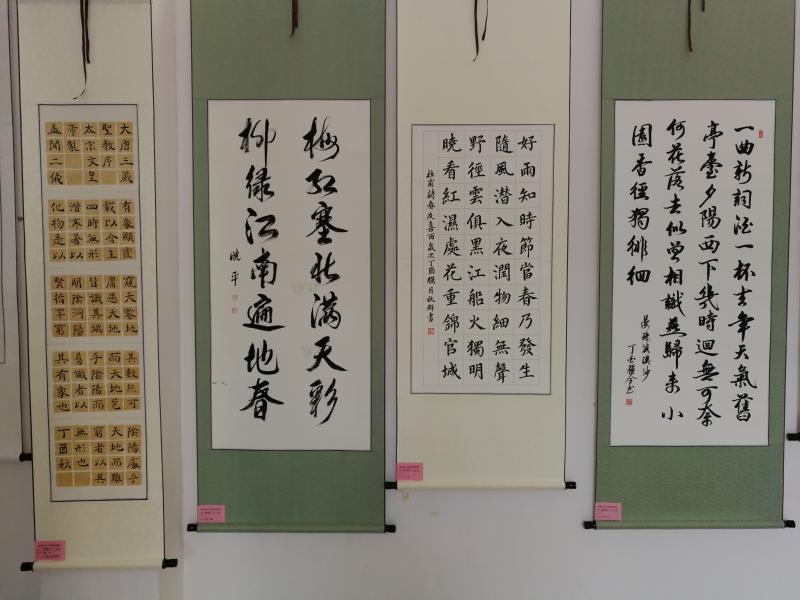 大唐三藏
聖教序
太宗文皇
帝製
蓋聞二儀
有象顯覆
載以含生
四時無形
潛寒暑以
化物是以
窺天鑒地
庸愚天地
皆識其端
明陰洞陽
賢哲罕窮
其數然可
而天地苞
乎陰陽而
易識者以
其有象也
陰陽處乎
天地而難
窮者以其
無形也
丁酉秋
梅红塞北滿天彩
柳绿江南遍地春
晓平
好雨知時節當春乃發生
隨風潛入夜潤物細無聲
野徑雲俱黑江船火獨明
曉看紅濕處花重錦官城
杜甫詩春夜喜雨歲次丁酉臘月敏群書
一曲新詞酒一杯去年天氣舊
亭臺夕陽西下幾時迴無可奈
何花落去似曾相識燕歸來小
園香徑獨徘徊
晏殊浣溪沙